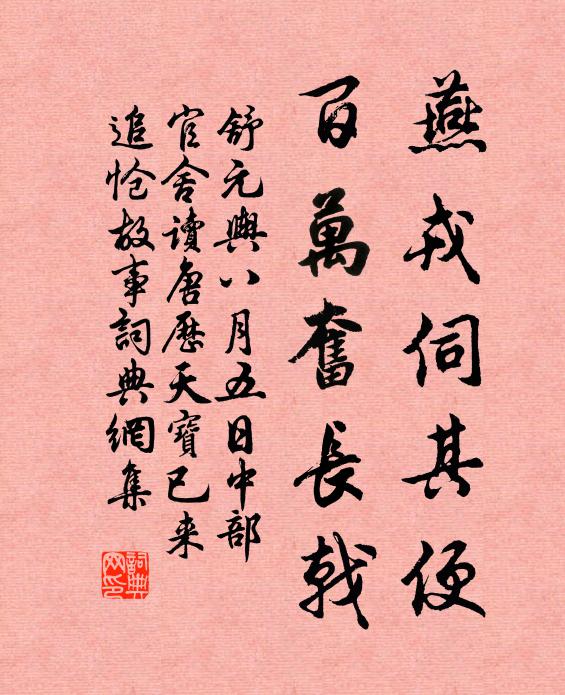 燕戎伺其便
百萬奮長戟
舒元輿八月五日中部
官舍讀唐歷天寶已来
追愴故事詞典網集
詞典網印